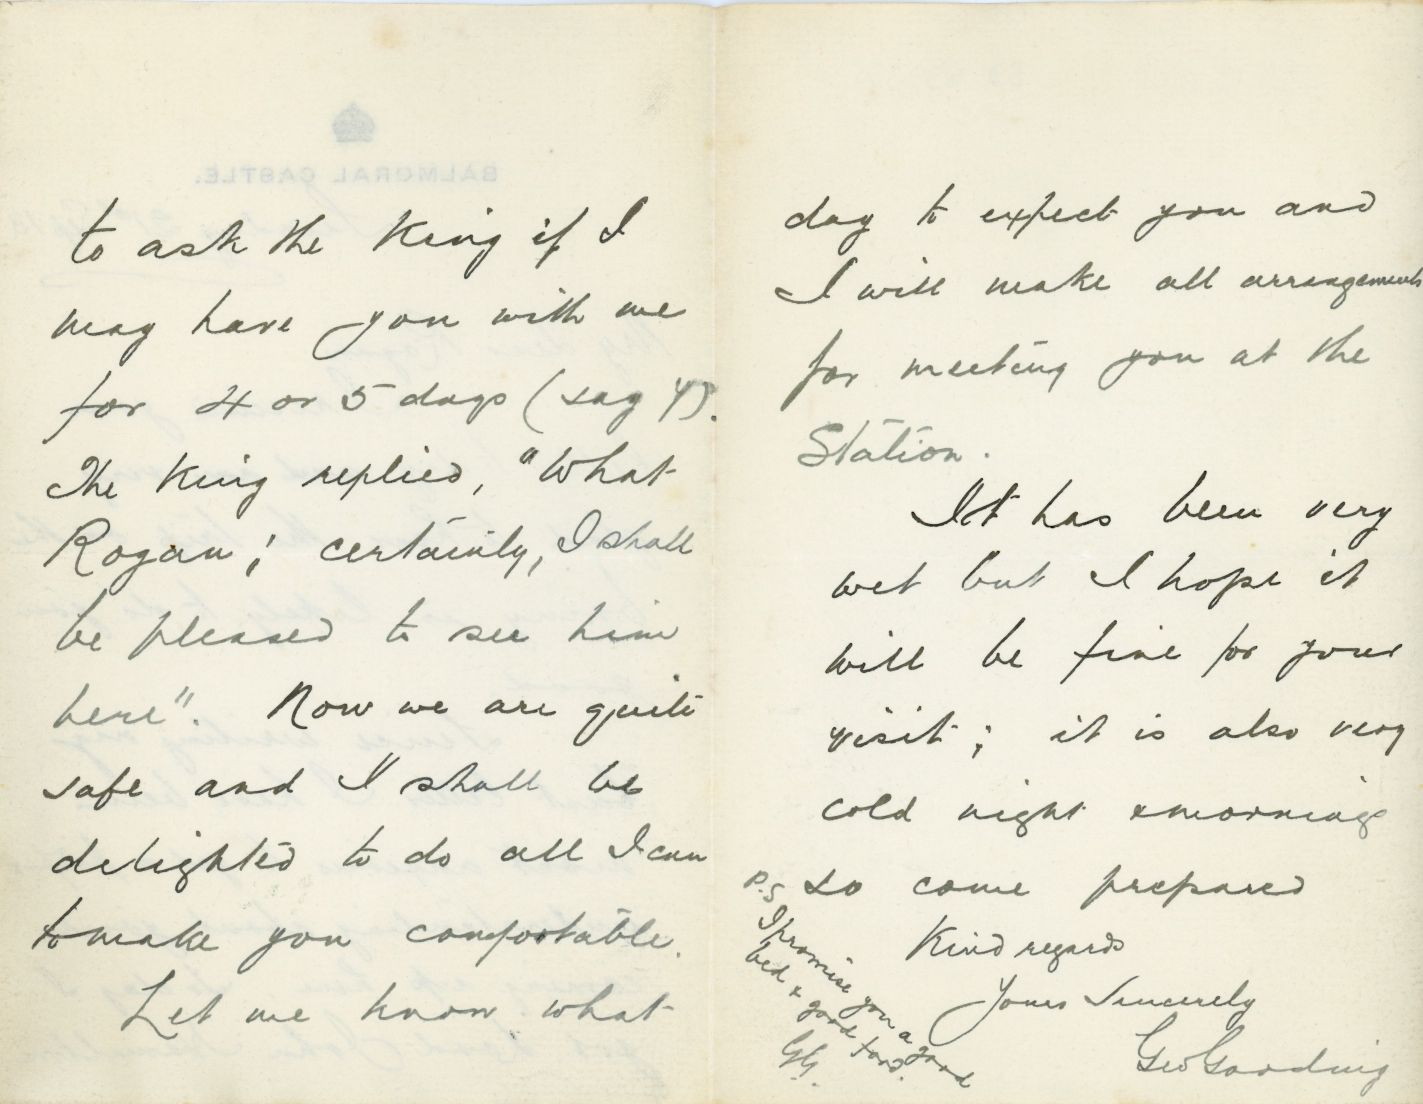 to ask the King if I
may have you with me
for 4 or 5 days (say 4).
The King replied, "What
Rogan; certainly, I shall
be pleased to see him
here". Now we are quite
safe and I shall be
delighted to do all I can
to make you comfortable.
Let me know what
day to expect you and
I will make all arrangements
for meeting you at the
Station.
It has been very
wet but I hope it
will be fine for your
visit; it is also very
cold night & morning
so come prepared
Kind regards
Yours Sincerely
Geo Gooding
P.S
I promise you a good
bed & good food.
GG.
BALMORAL CASTLE.